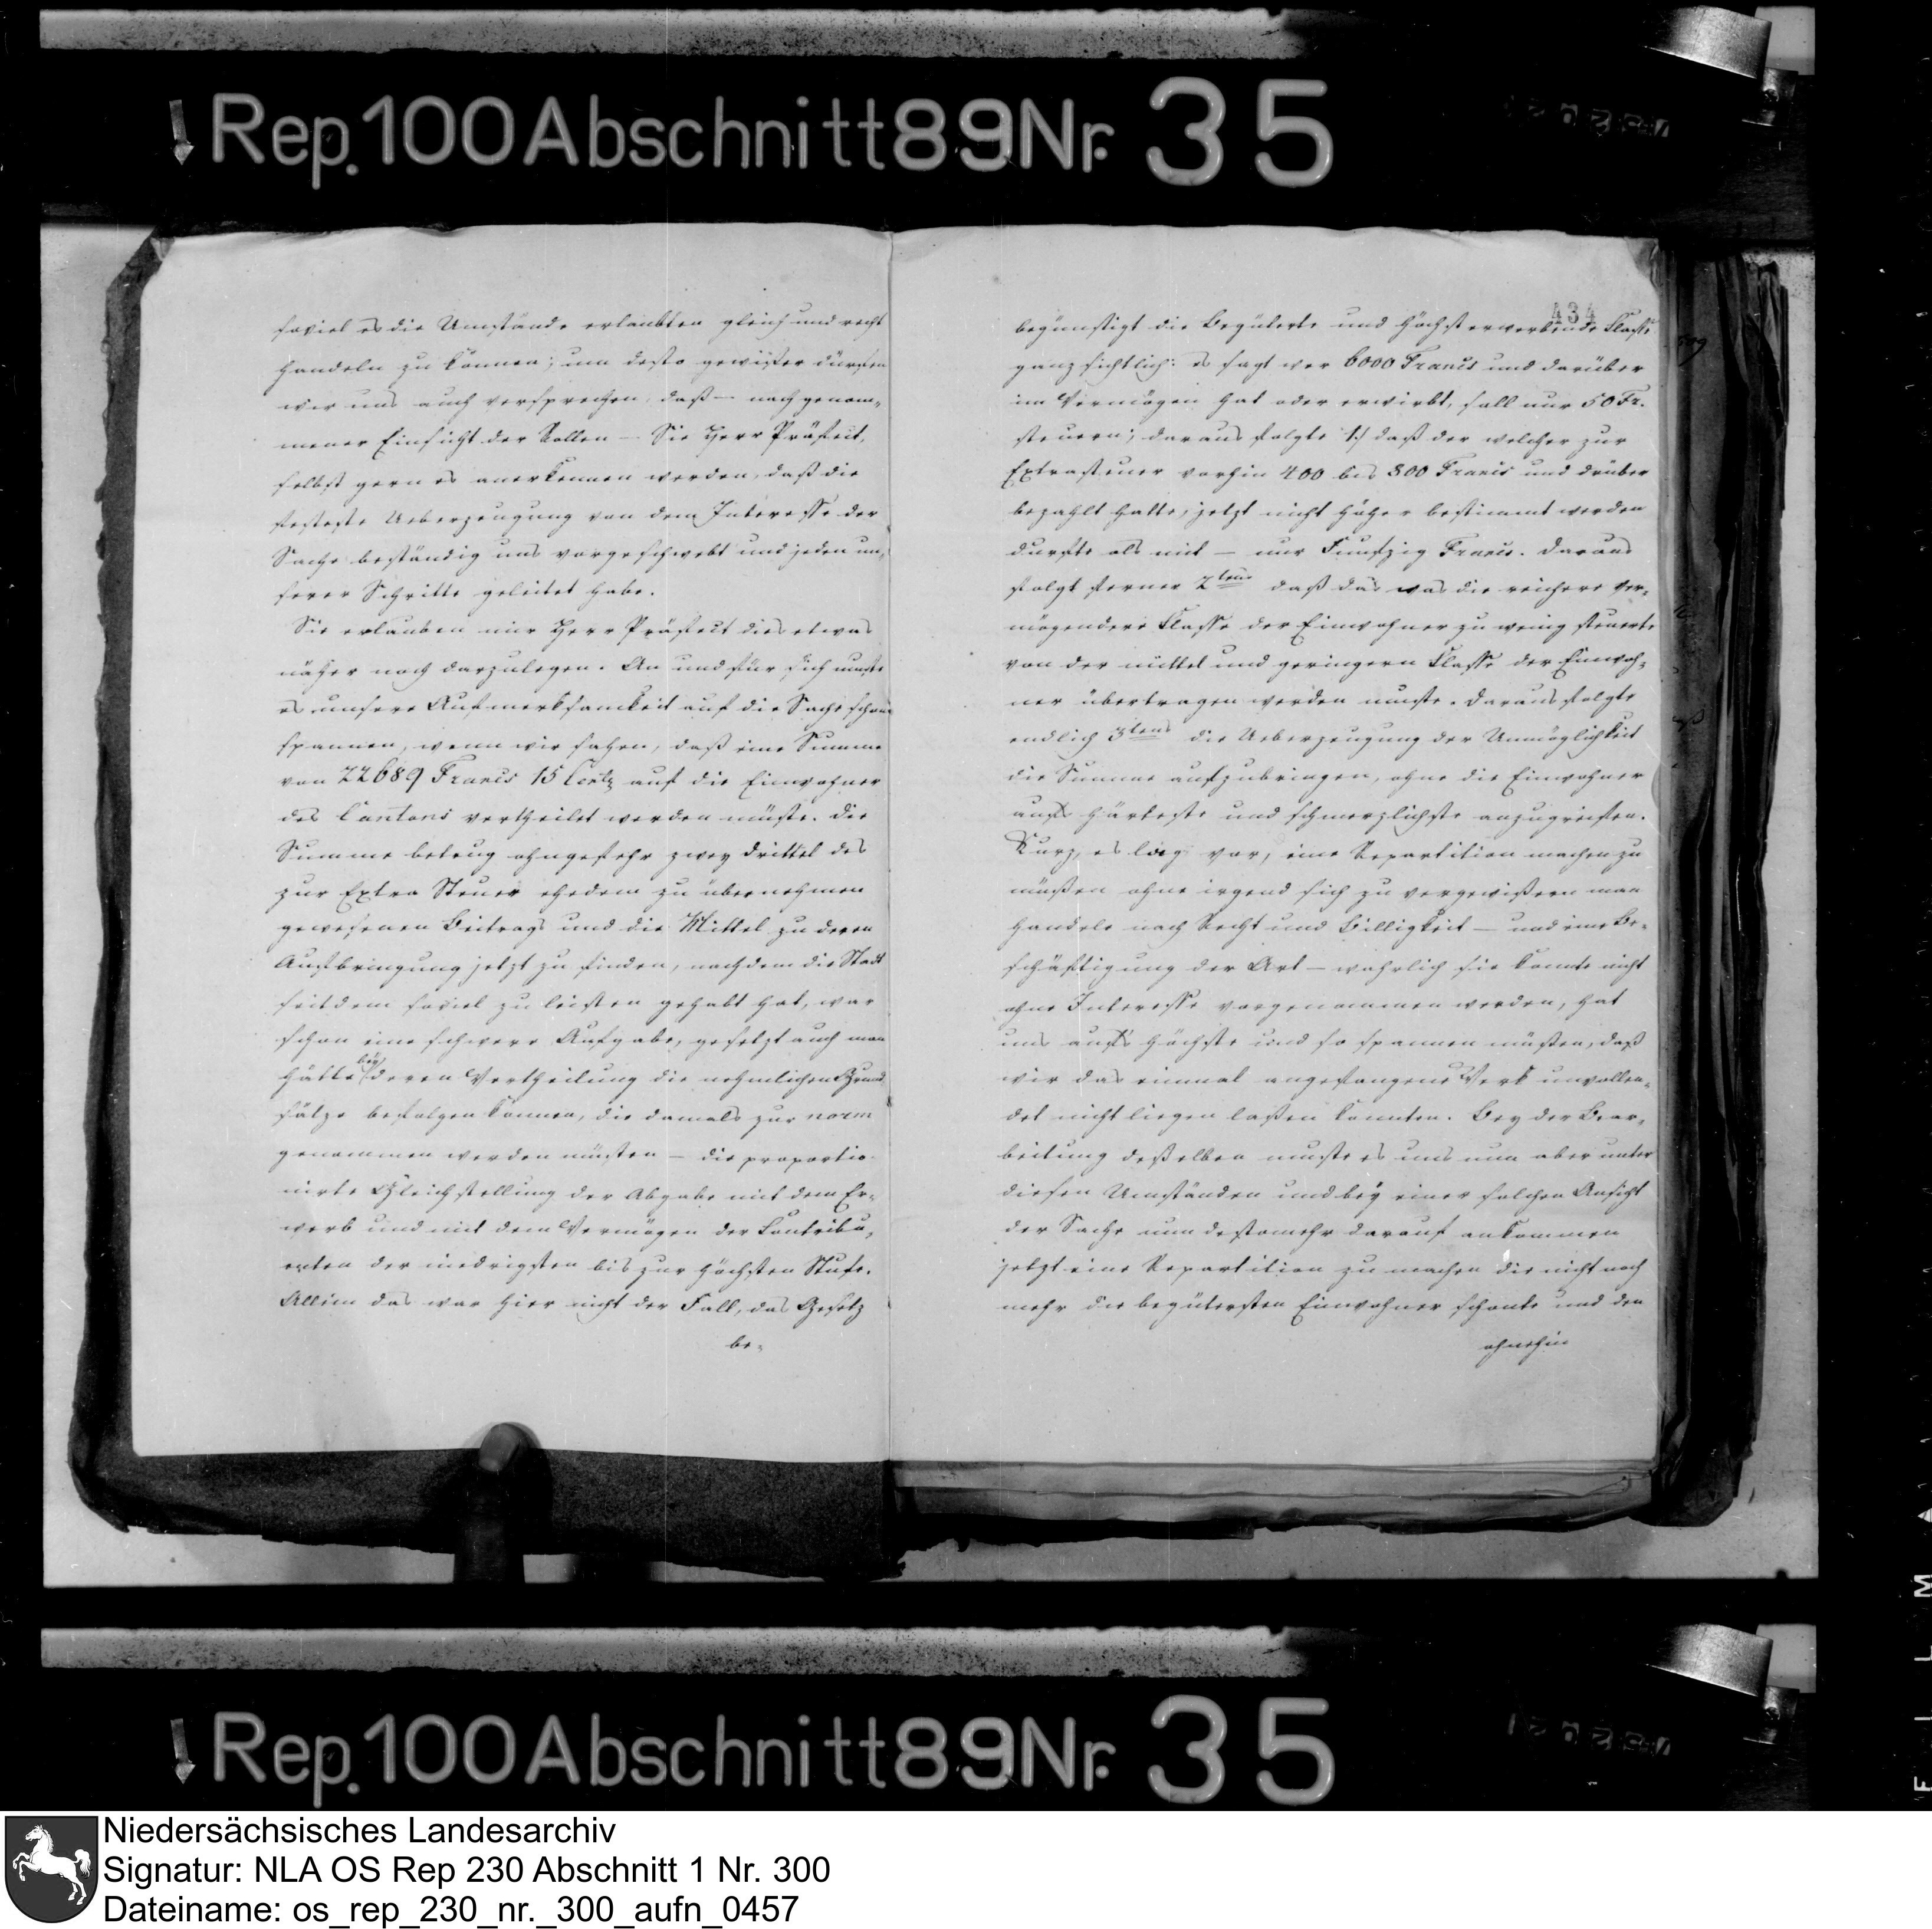 Rep. 100 Abschnitt 89 Nr. 35
soviel es die Umstände erlaubten gleich und recht
handeln zu können; um desto gewißer dürfen
wir uns auch versprechen, daß — nach genom-
mener Einsicht der Rollen — Sie Herr Präfect,
selbst gern es anerkennen werden, daß die
festeste Ueberzeugung von dem Interesse der
Sache beständig uns vorgeschwebt und jeden un-
serer Schritte geleitet habe.
Sie erlauben mir Herr Präfect dies etwas
näher noch darzulegen. An und für sich muste
es unsere Aufmerksamkeit auf die Sache schon
spannen, wenn wir sahen, daß eine Summe
von 22689 Francs 15 Centz auf die Einwohner
des Cantons vertheilet werden müste. Die
Summe betrug ohngefehr zwey Drittel des
zur Extra Steuer ehedem zu übernehmen
gewesenen Beitrags und die Mittel zu deren
Aufbringung jetzt zu finden, nachdem die Stadt
seitdem soviel zu leisten gehabt hat, war
schon eine schwere Aufgabe, gesetzt auch man
hätte bey deren Vertheilung die nehmlichen Grund
sätze befolgen können, die damals zur norm
genommen werden müsten — die proportio-
nirte Gleichstellung der Abgabe mit dem Er-
werb und mit dem Vermögen der Contribu-
enten der niedrigsten bis zur höchsten Stufe.
Allein das war hier nicht der Fall, das Gesetz
be-
434
begünstigt die Begüterte und höchst erwerbende Classe
ganz sichtlich: es sagt wer 6000 Francs und darüber
im Vermögen hat oder erwirbt, soll nur 50 Fr.
steuern; daraus folgte 1:/ daß der welcher zur
Extrasteuer vorhin 400 bis 800 Francs und drüber
bezahlt hatte, jetzt nicht höher bestimmt werden
durfte als mit — nur Funfzig Francs. Daraus
folgt ferner 2tens daß das was die reichere ver-
mögendere Classe der Einwohner zu wenig steuerte
von der mittel und geringern Classe der Einwoh-
ner übertragen werden muste. Daraus folgte
endlich 3tens die Ueberzeugung der Unmöglichkeit
die Summe aufzubringen, ohne die Einwohner
aufs härteste und schmerzlichste anzugreifen.
Kurz, es lag vor, eine Repartition machen zu
müßen ohne irgend sich zu vergewißern man
handele nach Recht und Billigkeit — und eine Be-
schäftigung der Art — wahrlich sie konnte nicht
ohne Interesse vorgenommen werden, hat
uns aufs höchste und so spannen müsten, daß
wir das einmal angefangene Werk unvollen-
det nicht liegen laßen konnten. Bey der Bear-
beitung deßelben muste es uns nun aber unter
diesen Umständen und bey einer solchen Ansicht
der Sache um destomehr darauf ankommen
jetzt eine Repartition zu machen die nicht noch
mehr die begütersten Einwohner schonte und den
ohnehin
Rep. 100 Abschnitt 89 Nr. 35
Niedersächsisches Landesarchiv
Signatur: NLA OS Rep 230 Abschnitt 1 Nr. 300
Dateiname: os_rep_230_nr._300_aufn_0457